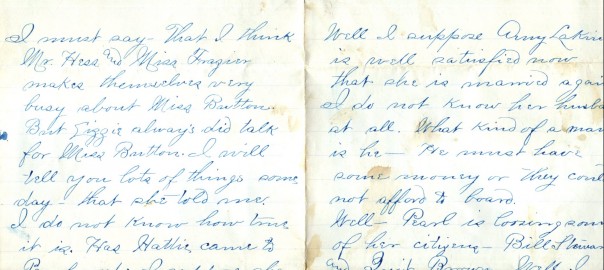 I must say - that I think
Mr. Hess and Miss Frazier
makes themselves very
busy about Miss Button.
But Lizzie always did talk
for Miss Button. I will
tell you lots of things some
day - that she told me.
I do not know how true
it is. Has Hattie came to
Well I suppose Amy
is well satisfied now
that she is married again
I do not know her husb
at all. What kind of a man
is he - He must have
some money or they coul
not afford to board.
Well - Pearl is loosing som
of her citizens - Bill Stewar
and Brown. Well I